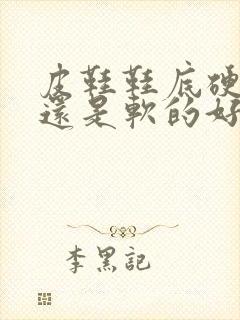 皮鞋鞋底硬
還是軟的好
李黑記